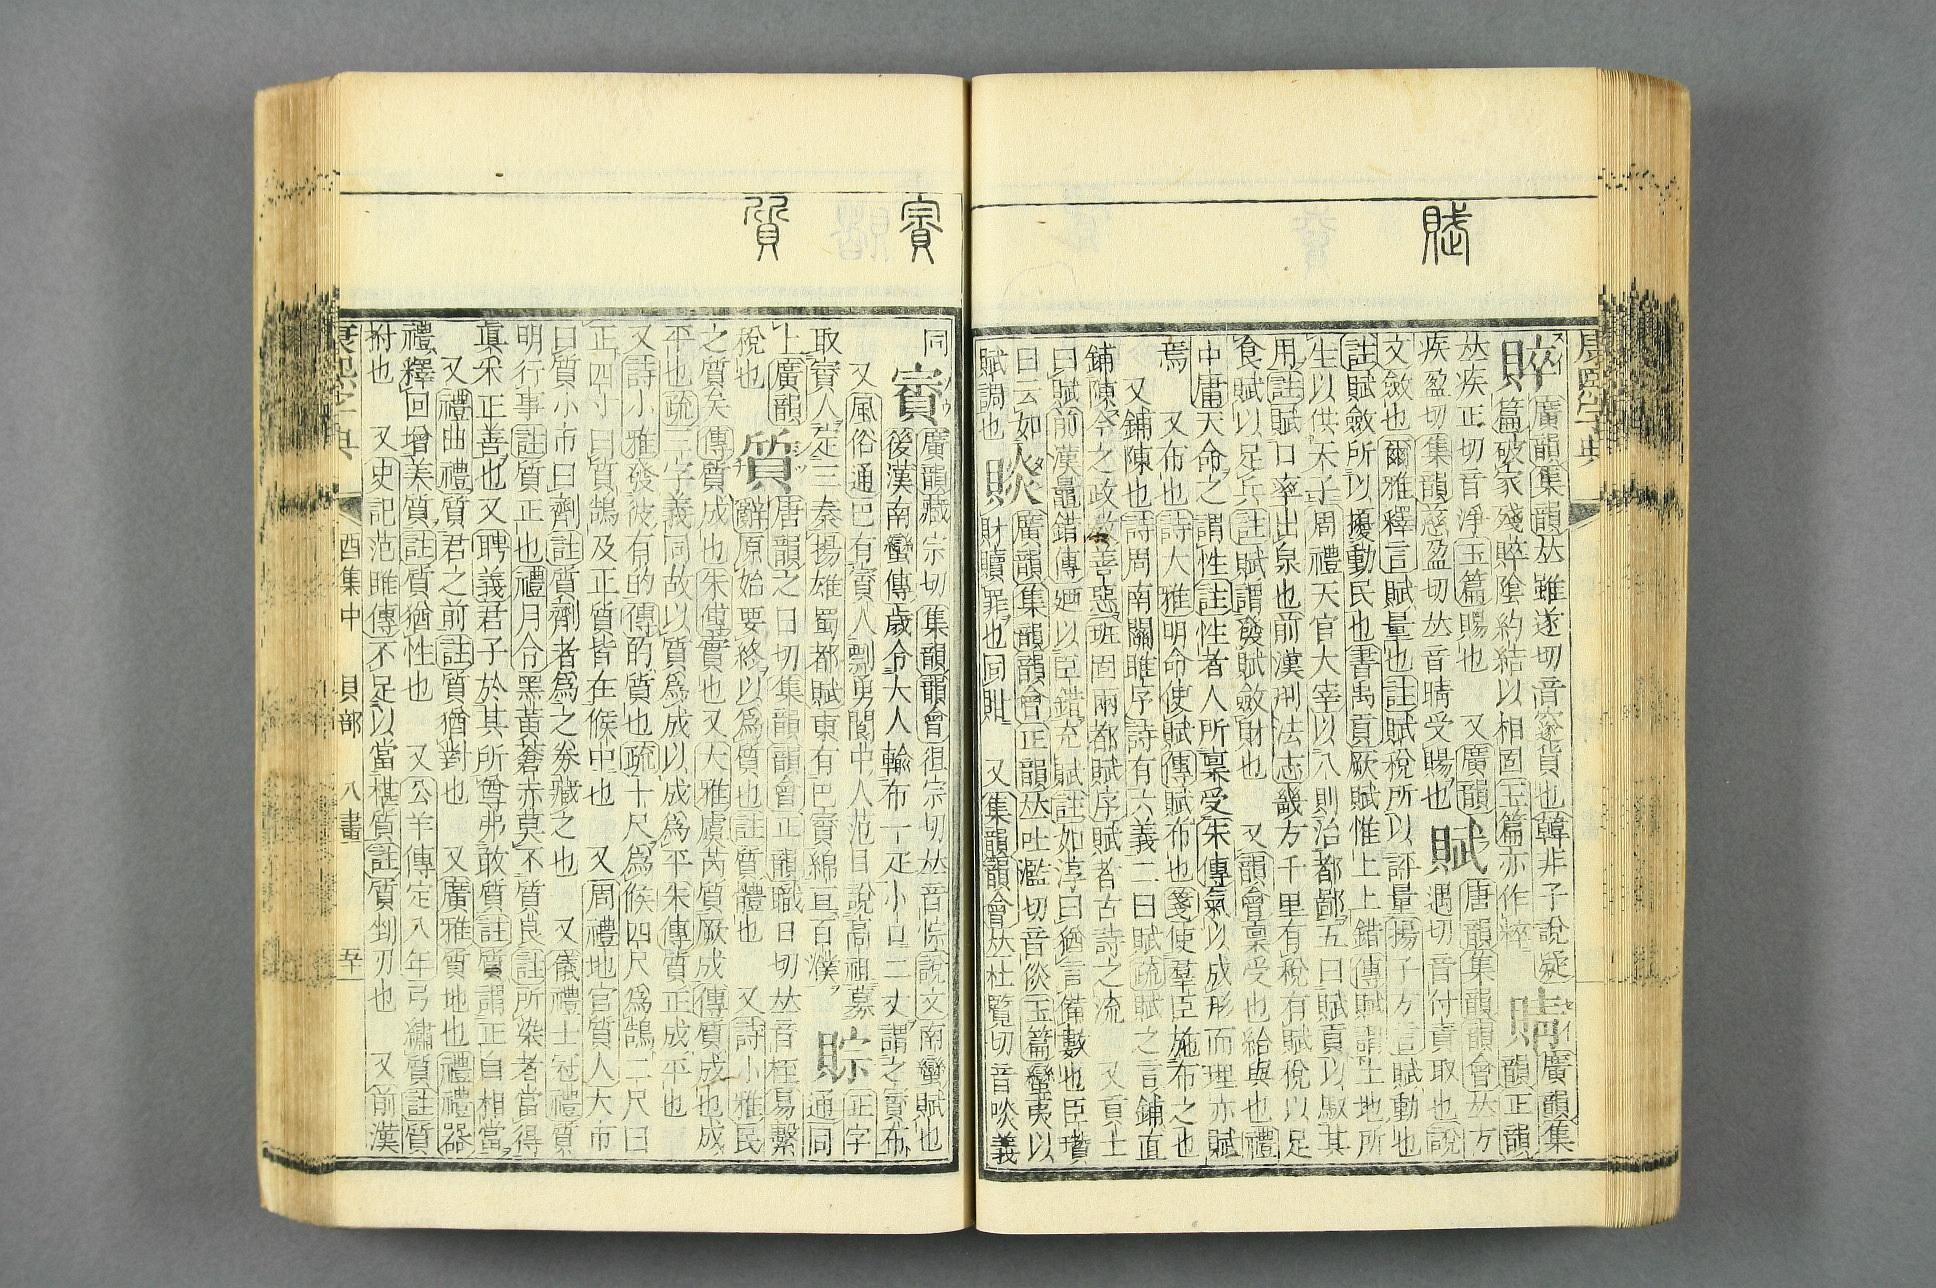 賦
康熙字典
賥廣韻集韻𠀤雖遂切音邃貨也韓非子說疑
篇破家殘賥隂約結以相固玉篇亦作䘹
䝼廣韻集
韻正韻
𠀤疾正切音淨玉篇賜也 又廣韻
疾盈切集韻慈盈切𠀤音晴受賜也
賦唐韻集韻韻會𠀤方
遇切音付責取也說
文斂也爾雅釋言賦量也註賦稅所以評量揚子方言賦動也
註賦斂所以擾動民也書禹貢厥賦惟上上錯傳賦謂土地所
生以供天子周禮天官大宰以八則治都鄙五曰賦貢以馭其
用註賦口率出泉也前漢𠛬法志畿方千里有稅有賦稅以足
食賦以足兵註賦謂發賦斂財也 又韻會稟受也給與也禮
中庸天命之謂性註性者人所稟受朱傳氣以成形而理亦賦
焉 又布也詩大雅明命使賦傳賦布也箋使羣臣施布之也
又鋪陳也詩周南關雎序詩有六義二曰賦疏賦之言鋪直
鋪陳今之政敎善惡班固兩都賦序賦者古詩之流 又貢士
曰賦前漢鼂錯傳廼以臣錯充賦註如淳曰猶言備數也臣瓚
曰云如
賦調也
賧廣韻集韻韻會正韻𠀤吐濫切音倓玉篇蠻夷以
財贖罪也同䝪 又集韻韻會𠀤杜覽切音啖義
賨
質
同
賨廣韻藏宗切集韻韻會徂宗切𠀤音悰說文南蠻賦也
後漢南蠻傳歲令大人輸布一疋小口二丈謂之賨布
又風俗通巴有賨人剽勇閬中人范目說高祖募
取賨人定三秦揚雄蜀都賦東有巴賨綿亘百濮
賩正字
通同
上廣韻
稅也
質唐韻之日切集韻韻會正韻職日切𠀤音桎易繫
辭原始要終以爲質也註質體也 又詩小雅民
之質矣傳質成也朱傳實也又大雅虞芮質厥成傳質成也成
平也疏三字義同故以質爲成以成爲平朱傳質正成平也
又詩小雅發彼有的傳的質也疏十尺爲侯四尺爲鵠二尺曰
正四寸曰質鵠及正質皆在候中也 又周禮地官質人大市
曰質小市曰劑註質劑者爲之券藏之也 又儀禮士冠禮質
明行事註質正也禮月令黑黃蒼赤莫不質良註所染者當得
眞采正善也又聘義君子於其所尊弗敢質註質謂正自相當
又禮曲禮質君之前註質猶對也 又廣雅質地也禮禮器
禮釋回增美質註質猶性也 又公羊傳定八年弓繡質註質
拊也 又史記范雎傳不足以當椹質註質剉刃也 又前漢
康熙字典 酉集中 貝部 八畫 五十